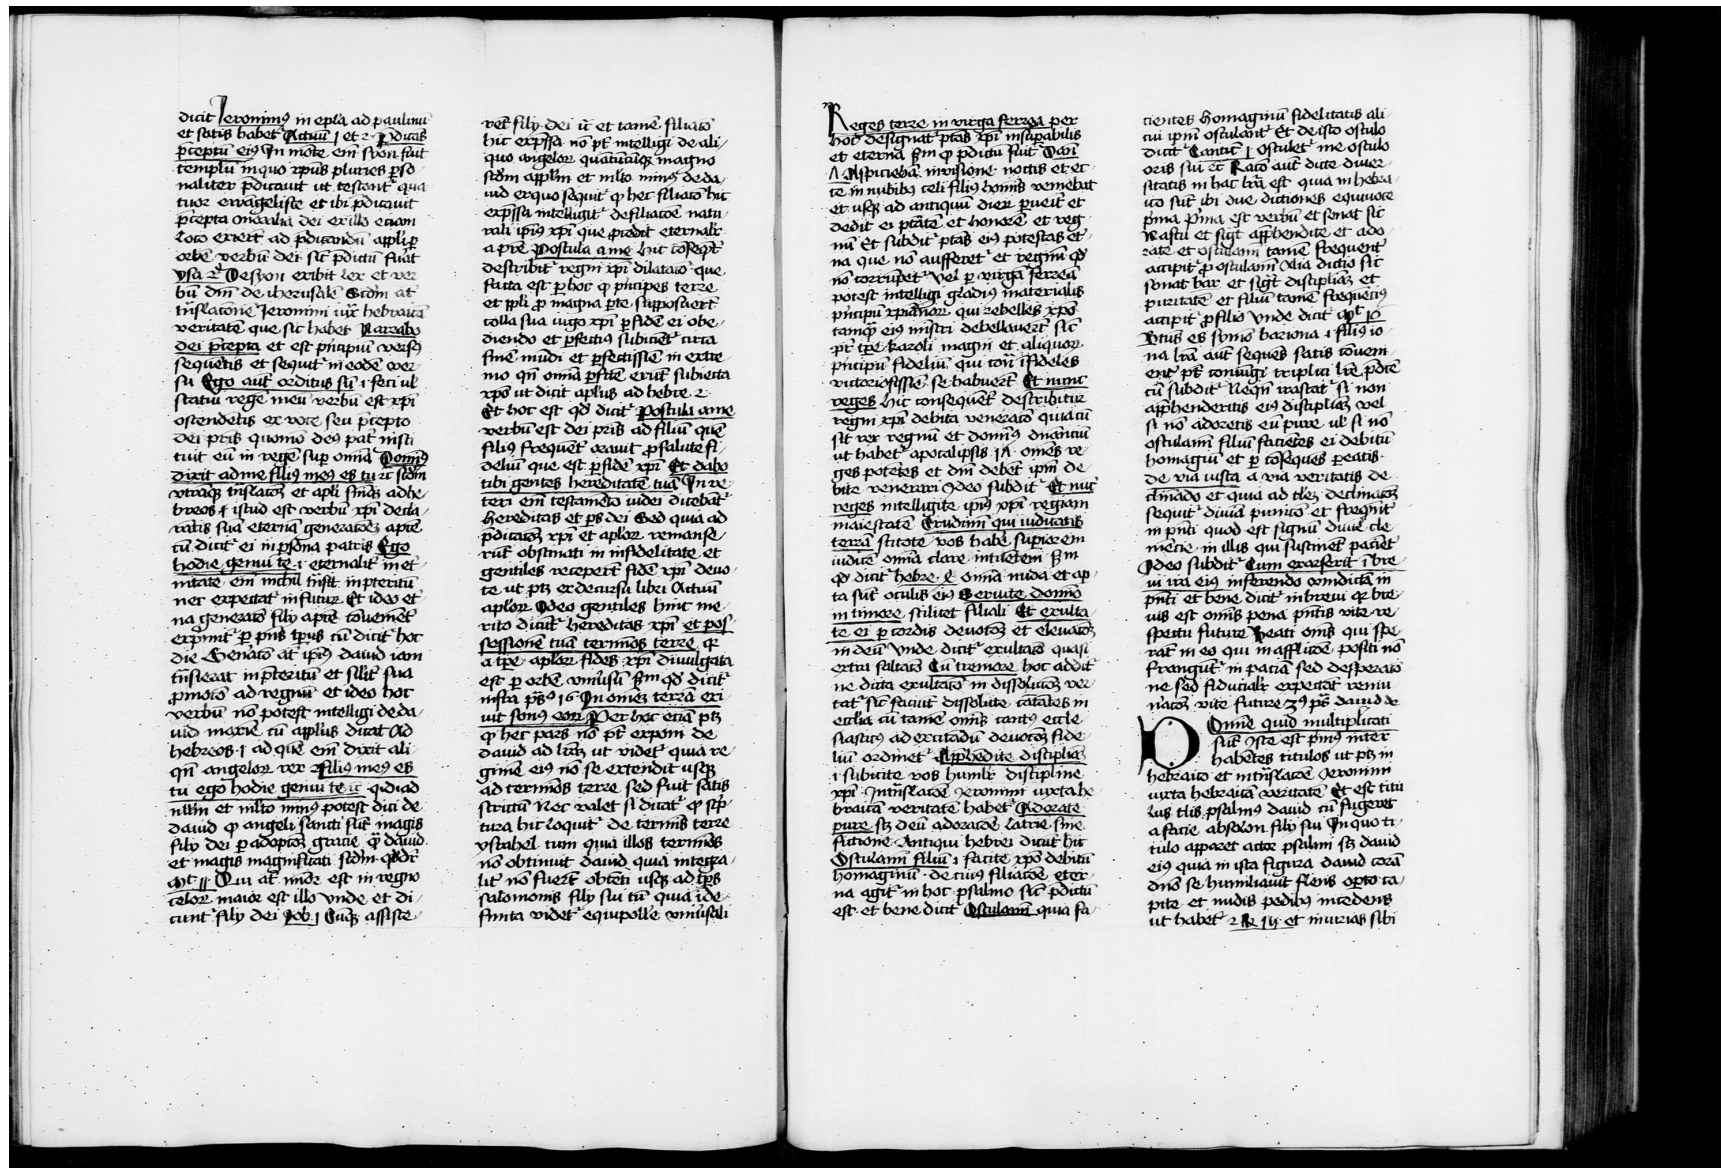 dicit Ieronimꝰ in epl̄a ad paulinū
et satis habet᷑ Actuū 1 et 2 p̄dicās
p̄ceptū eiꝰ In mōte em̄ syon fuit
templū in quo xpūs pluries p̄so-
naliter p̄dicauit ut testant᷑ qua-
tuor ewāgeliste et ibi p̄dicauit
p̄cepta moralia dei ex illo eciam
loco exiert̄ ad p̄dicandū appl̄i ꝑ
orbē verbū dei sic̄ p̄dictū fuāt
ysa 2° De syon exibit lex et ver-
bū dn̄i de iherusalē Scd̄m at̄
trn̄slacōnē Ieronimi iux̄ hebraicā
veritatē que sic habet Narrabo
dei p̄cepta et est p̄ncipiū versꝰ
sequētis et sequit᷑ in eodē ver-
su Ego aut̄ orditus sū .i. feci ul̄
statui regē meū verbū est xp̄i
ostendētis ex vote seu p̄cepto
dei pr̄is quomō deꝰ pat̄ insti-
tuit eū in regē suꝑ om̄ia Domīꝰ
dixit ad me filiꝰ meꝰ es tu ⁊c̄ scd̄m
vtrāqꝫ trn̄slacōꝫ et apl̄i sm̄iaꝫ ad he-
breos .1. istud est verbū xp̄i decla-
rātis suā eternā generacōeꝫ aptē
cū dicit᷑ ei in ꝑsona patris Ego
hodie genui te .i. eternalit᷑ in et᷑-
nitate em̄ nichil trn̄sit in p̄teritū
nec expectat᷑ in futur̄ Et ideo et᷑-
na generacō filij aptē cōuenient᷑
exp̄mit᷑ ꝑ pn̄s tp̄us cū dicit᷑ ho-
die Gen̄acō at̄ ipiꝰ dauid iam
trn̄sierat in p̄teritū et sil̄it᷑ sua
ꝓmocō ad regnū et ideo hoc
verbū nō potest intelligi de da-
uid maxīe cū appl̄us dicat Ad
hebreos .1. ad quē em̄ dixit ali-
qn̄ angelor̄ xp̄s filiꝰ meꝰ es
tu ego hodie genui te ⁊c̄ q̄ dicat
nll̄m et nl̄lo minꝰ potest dici de
dauid qꝫ angeli sancti sūt magis
filij dei ꝑ adopcōꝫ gracie ꝗ̄ dauid
et magis magnificati scd̄m qd̄ dr̄
Mt̄ 11 Qui at̄ minor est in regno
celor̄ maior est illo vnde et di-
cunt᷑ filij dei Iob 1 Cūqꝫ assiste-
rēt filij dei ⁊c̄ et tamē filiacō
hic exp̄ssa nō pt̄ intelligi de ali-
quo angelor̄ quātūcūqꝫ magno
scd̄m appl̄m et nl̄to minꝰ de da-
uid ex quo sequit᷑ qꝫ hec filiacō hic
exp̄ssa intelligit᷑ de filiacōe natu-
rali ipiꝰ xp̄i que p̄cedit eternalr̄
a pr̄e Postula a me hic cōseq̄nt᷑
describit᷑ regni xp̄i dilatacō que
facta est ꝑ hoc qꝫ p̄ncipes terre
et ppl̄i ꝓ magna ꝑte supposuert̄
colla sua iugo xp̄i ꝑ fidē ei obe-
diendo et ꝑfectiꝰ subicient᷑ circa
finē mūdi et ꝑfectissiē in extre-
mo qn̄ om̄ia ꝑfcē erūt subiecta
xp̄o ut dicit apl̄us ad hebre 2
Et hoc est qd̄ dicit Postula a me
verbū est dei pr̄is ad filiū quē
filiꝰ frequent᷑ orauit ꝓ salute fi-
deliū que est ꝑ fidē xp̄i Et dabo
tibi gentes hereditatē tuā In ve-
teri em̄ testamēto iudei dicebāt᷑
hereditas et ꝑs dei Sed quia ad
p̄dicacōꝫ xp̄i et apl̄or̄ remanse-
rūt obstinati in infidelitate et
gentiles recepert̄ fidē xp̄i deuo-
te ut ptꝫ ex decursu libri Actuū
apl̄or̄ Ideo gentiles hinc me-
rito dicūt᷑ hereditas xp̄i et pos-
sessionē tuā termīos terre qꝛ
a tp̄e apl̄or̄ fides xp̄i diuulgata
est ꝑ orbē vniūsū scd̄m qd̄ dicit᷑
infra ps̄ꝰ 18 In omēꝫ terrā exi-
uit sonꝰ eor̄ Per hoc eciā ptꝫ
qꝫ hec pars nō pt̄ exponi de
dauid ad lr̄aꝫ ut videt᷑ quia re-
gimē eiꝰ nō se extendit usqꝫ
ad termīos terre sed fuit satis
strictū Nec valet si dicat᷑ qꝫ sc̄p-
tura hic loquit᷑ de termīs terre
ysrahel tum quia illos termīos
nō obtinuit dauid quia integra-
lit᷑ nō fuert̄ obtēti usqꝫ ad tp̄us
salomonis filij sui tū quia īde-
finita videt᷑ equipolle᷑ vniūsali
Reges terre in virga ferrea per
hoc designat᷑ ptās xp̄i insuperabilis
et eterna scd̄m qꝫ p̄dictū fuit Dan̄
7 Aspiciebā in visione noctis et ec-
ce in nubibꝰ celi filiꝰ homīs veniebat
et usqꝫ ad antiquū dier̄ ꝑueīt et
dedit ei ptātē et honorē et reg-
nū Et subdit᷑ ptās eiꝰ potestas et᷑-
na que nō aufferet᷑ et regnū qd̄
nō corrūpet᷑ Vel ꝑ virgā ferreā
potest intelligi gladiꝰ materialis
p̄ncipū xp̄ianor̄ qui rebelles xp̄o
tamqꝫ eiꝰ mīstri debellauert̄ sic̄
pt̄ tp̄e Karoli magni et aliquor̄
p̄ncipū fideliū qui cont̄ īfideles
victoriosissiē se habuert̄ Et nunc
reges hic consequent᷑ describitur
regni xp̄i debita veneracō quia cū
sit rex regnū et domīꝰ dn̄anciū
ut habet᷑ apocalipsis 17 omēs re-
ges potētes et dn̄i debēt ipm̄ de-
bite venerari Ideo subdit᷑ Et nūc
reges intelligite ipiꝰ xp̄i regiam
maiestatē Erudimī qui iudicatis
terrā scitote vos habē suꝑiorem
iudicē om̄ia clare intuētem scd̄m
qd̄ dicit᷑ hebre 4 om̄ia nuda et ap-
ta sūt oculis eiꝰ Seruite domīo
in timore scilicet filiali Et exulta-
te ei ꝑ cordis deuocōꝫ et eleuacōꝫ
in deū Vnde dicit᷑ exultacō quasi
extra saltacō Cū tremore hoc addit᷑
ne dicta exultacō in dissolucōꝫ ver-
tat᷑ sic̄ faciūt dissolute cātātes in
ecclīa cū tamē om̄is cantꝰ eccle-
siasticꝰ ad excitādū deuocōꝫ fide-
liū ordinet᷑ Appr̄hēdite disciplīaꝫ
.i. subicite vos humilr̄ discipline
xp̄i In trn̄slacōe Ieronimi iuxta he-
braicā veritatē habet᷑ Adorate
pure scꝫ deū adoracōe latrie sine
fictione Antiqui hebrei dicūt hic
Osculamī filiū .i. facite xp̄o debitū
homagiū de cuiꝰ filiacōe eter-
na agit᷑ in hoc psalmo sic̄ p̄dictū
est et bene dicit Osculamī quia fa-
cientes homagiū fidelitatis ali-
cui ipm̄ osculant᷑ Et de isto osculo
dicit᷑ Cantic̄ 1 osculet᷑ me osculo
oris sui ⁊c̄ Racō aut̄ dicte diuer-
sitatis in hac lr̄a est quia in hebra-
ico sūt ibi due dictiones equiuoce
p̄ma p̄ma est verbū et sonat sic̄
Nascu et sigt̄ appr̄hendite et ado-
rate et osculamī tamē frequent᷑
accipit᷑ ꝓ osculamī Alia dictio sic̄
sonat bar et sigt̄ disciplīaꝫ et
puritatē et filiū tamē frequēciꝰ
accipit᷑ ꝓ filio Vnde dicit᷑ Mt̄ 16
Btūs es symō bariona .i. filiꝰ io-
na lr̄a aut̄ sequēs satis cōueni-
ent᷑ pt̄ coniūgi triplici lr̄e p̄dcē
cū subdit᷑ Neqn̄ irascat᷑ si non
appr̄henderitis eiꝰ disciplīaꝫ vel
si nō adoretis eū pure ul̄ si nō
osculamī filiū faciētes ei debitū
homagiū et ꝑ cōsequēs pereatis
de via iusta a via veritatis de-
clinādo et quia ad tl̄eꝫ declinacōꝫ
sequit᷑ diuīa punicō et freqn̄t᷑
in pn̄ti quod est signū diuīe cle-
mēcie in illis qui sustinēt paciēt᷑
Ideo subdit᷑ Cum exarserit ī bre-
ui ira eiꝰ inferendo vindictā in
pn̄ti et bene dicit in breui qꝛ bre-
uis est om̄is pena pn̄tis vite re-
spectu future Beati om̄s qui spe-
rāt in eo qui in afflicōe positi nō
frangūt᷑ in paciā sed desperacō
ne sed fiducialr̄ expectāt veniā
nacōꝫ vite future 3ꝰ ps̄ dauid ⁊c̄
Domīe quid multiplicati
sūt Iste est p̄mꝰ inter
habētes titulos ut ptꝫ in
hebraico et in trn̄slacōe Ieronimi
iuxta hebraicā veritatē Et est titu-
lus tl̄is psalmus dauid cū fugeret
a facie absolon filij sui In quo ti-
tulo apparet actor psalmi scꝫ dauid
eiꝰ quia in ista figura dauid corā
dn̄o se humiliauit flens oꝑto ca-
pite et nudis pedibꝰ incedens
ut habet᷑ 2 R̄ 15 et iniurias sibi